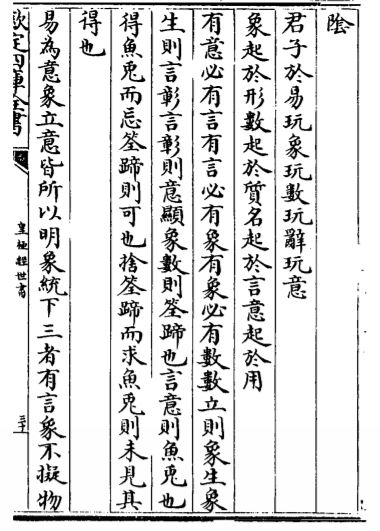 陰
君子於易玩象玩數玩辭玩意
象起於形數起於質名起於言意起於用
有意必有言有言必有象有象必有數數立則象生象
生則言彰言彰則意顯象數則筌蹄也言意則魚兎也
得魚兎而忘筌蹄則可也捨筌蹄而求魚兎則未見其
得也
易為意象立意皆所以明象統下三者有言象不擬物
欽定四庫全書
皇極經世書